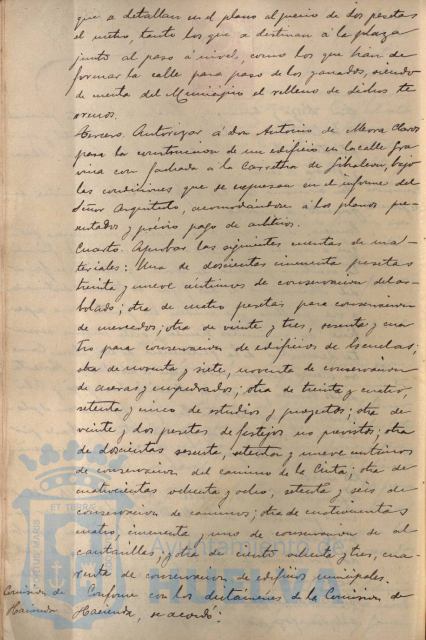 que se detallan en el plano al precio de dos pesetas
el metro, tanto los que se destinan á la plaza
junto al paso á nivel, como los que han de
formar la calle para paso de los ganados, siendo
de cuenta del Municipio el relleno de dichos te
rrenos.
Tercero. Autorizar á don Antonio de Mora Claros
para la construccion de un edificio en la calle Gra
vina con fachada á la Carretera de Gibraleon, bajo
las condiciones que se expresan en el informe del
Señor Arquitecto, acomodándose á los planos pre-
sentados y prévio pago de arbitrios.
Cuarto. Aprobar las siguientes cuentas de ma-
teriales: Una de doscientas cincuenta pesetas
treinta y nueve céntimos de conservacion del ar-
bolado; otra de cuatro pesetas para conservacion
de mercados; otra de veinte y tres, sesenta y cua
tro para conservacion de edificios de Escuelas;
otra de noventa y siete, noventa de conservacion
de aceras y empedrados; otra de treinta y cuatro,
setenta y cinco de estudios y proyectos; otra de
veinte y dos pesetas de festejos no previstos; otra
de doscientas sesenta, setenta y nueve céntimos
de conservacion del camino de la Cinta; otra de
cuatrocientas ochenta y ocho, setenta y seis de
conservacion de caminos; otra de cuatrocientas
cuatro, cincuenta y uno de conservacion de al
cantarillas, y otra de ciento ochenta y tres, cua-
renta de conservacion de edificios municipales.
Comision de
Hacienda
Conforme con los dictámenes de la Comision de
Hacienda, se acordó:
ET TERRÆ
PORTUS MARIS
Ayuntamiento de
HUELVA